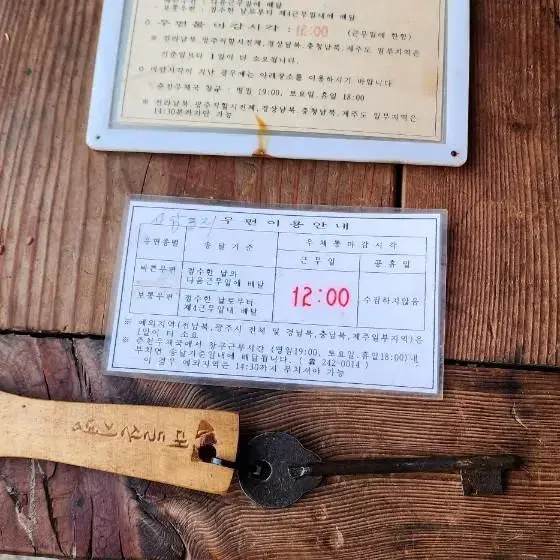 보통우편 : 접수한 날로부터 제4근무일내에 배달
○ 우편물 마감시각 : 12:00 (근무일에 한함)
※ 전라남북, 광주직할시전체, 경상남북, 충청남북, 제주도 일부지역은
기준일보다 1일이 더 소요됩니다.
○ 마감시각이 지난 경우에는 아래장소를 이용하시기 바랍니다
춘천우체국 창구 : 평일 19:00, 토요일.휴일 18:00
※ 전라남북, 광주직할시전체, 경상남북, 충청남북, 제주도 일부지역은
14:30분까지만 가능
우편이용안내
우편종별 송달기준 우체통마감시각
근무일 공휴일
빠른우편 접수한 날의
다음근무일에 배달
12:00 수집하지않음
보통우편 접수한 날로부터
제4근무일내 배달
※ 예외지역(전남북,광주시 전체 및 경남북,충남북,제주일부지역)은
1일이 더 소요
※ 춘천우체국에서 창구근무시간 (평일19:00, 토요일.휴일18:00)내
부치면 송달기준일내에 배달됩니다. (☎ 242-0014)
이 경우 예외지역은 14:30까지 부치셔야 가능